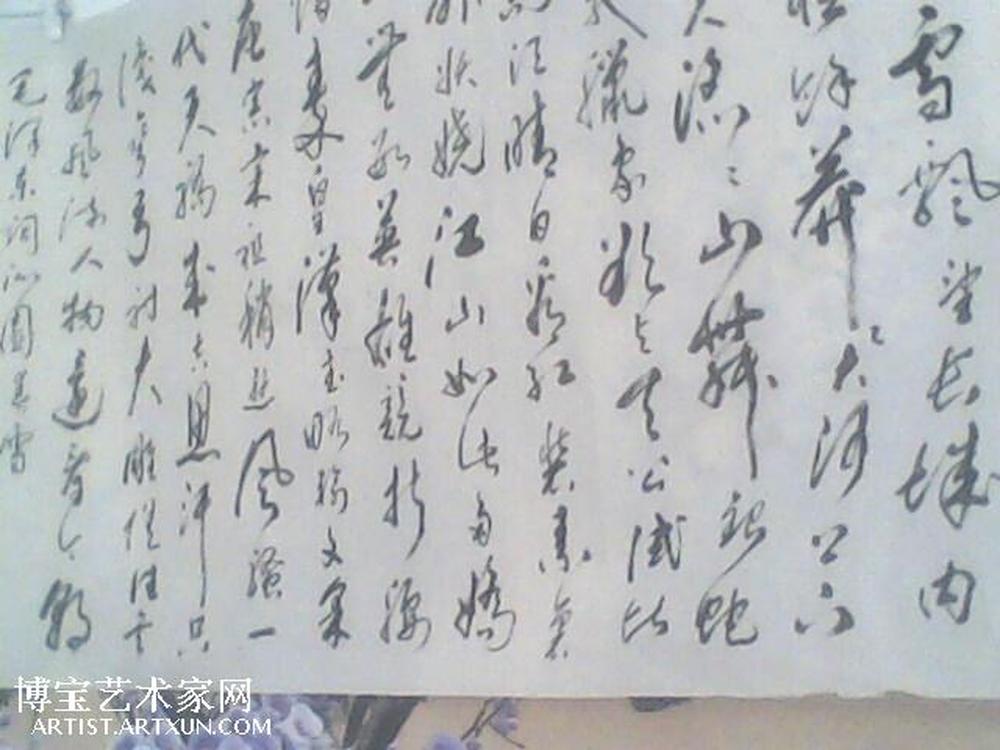 雪飘望长城内
馀莽莽大河上下
滔滔山舞银蛇
腊象欲与天公试比
须晴日看红装素裹
外妖娆江山如此多娇
无数英雄竞折腰
秦皇汉武略输文采
唐宗宋祖稍逊风骚一
代天骄成吉思汗只
识弯弓射大雕俱往矣
数风流人物还看今朝
毛泽东词沁园春雪
博宝艺术家网
ARTIST.ARTXUN.COM